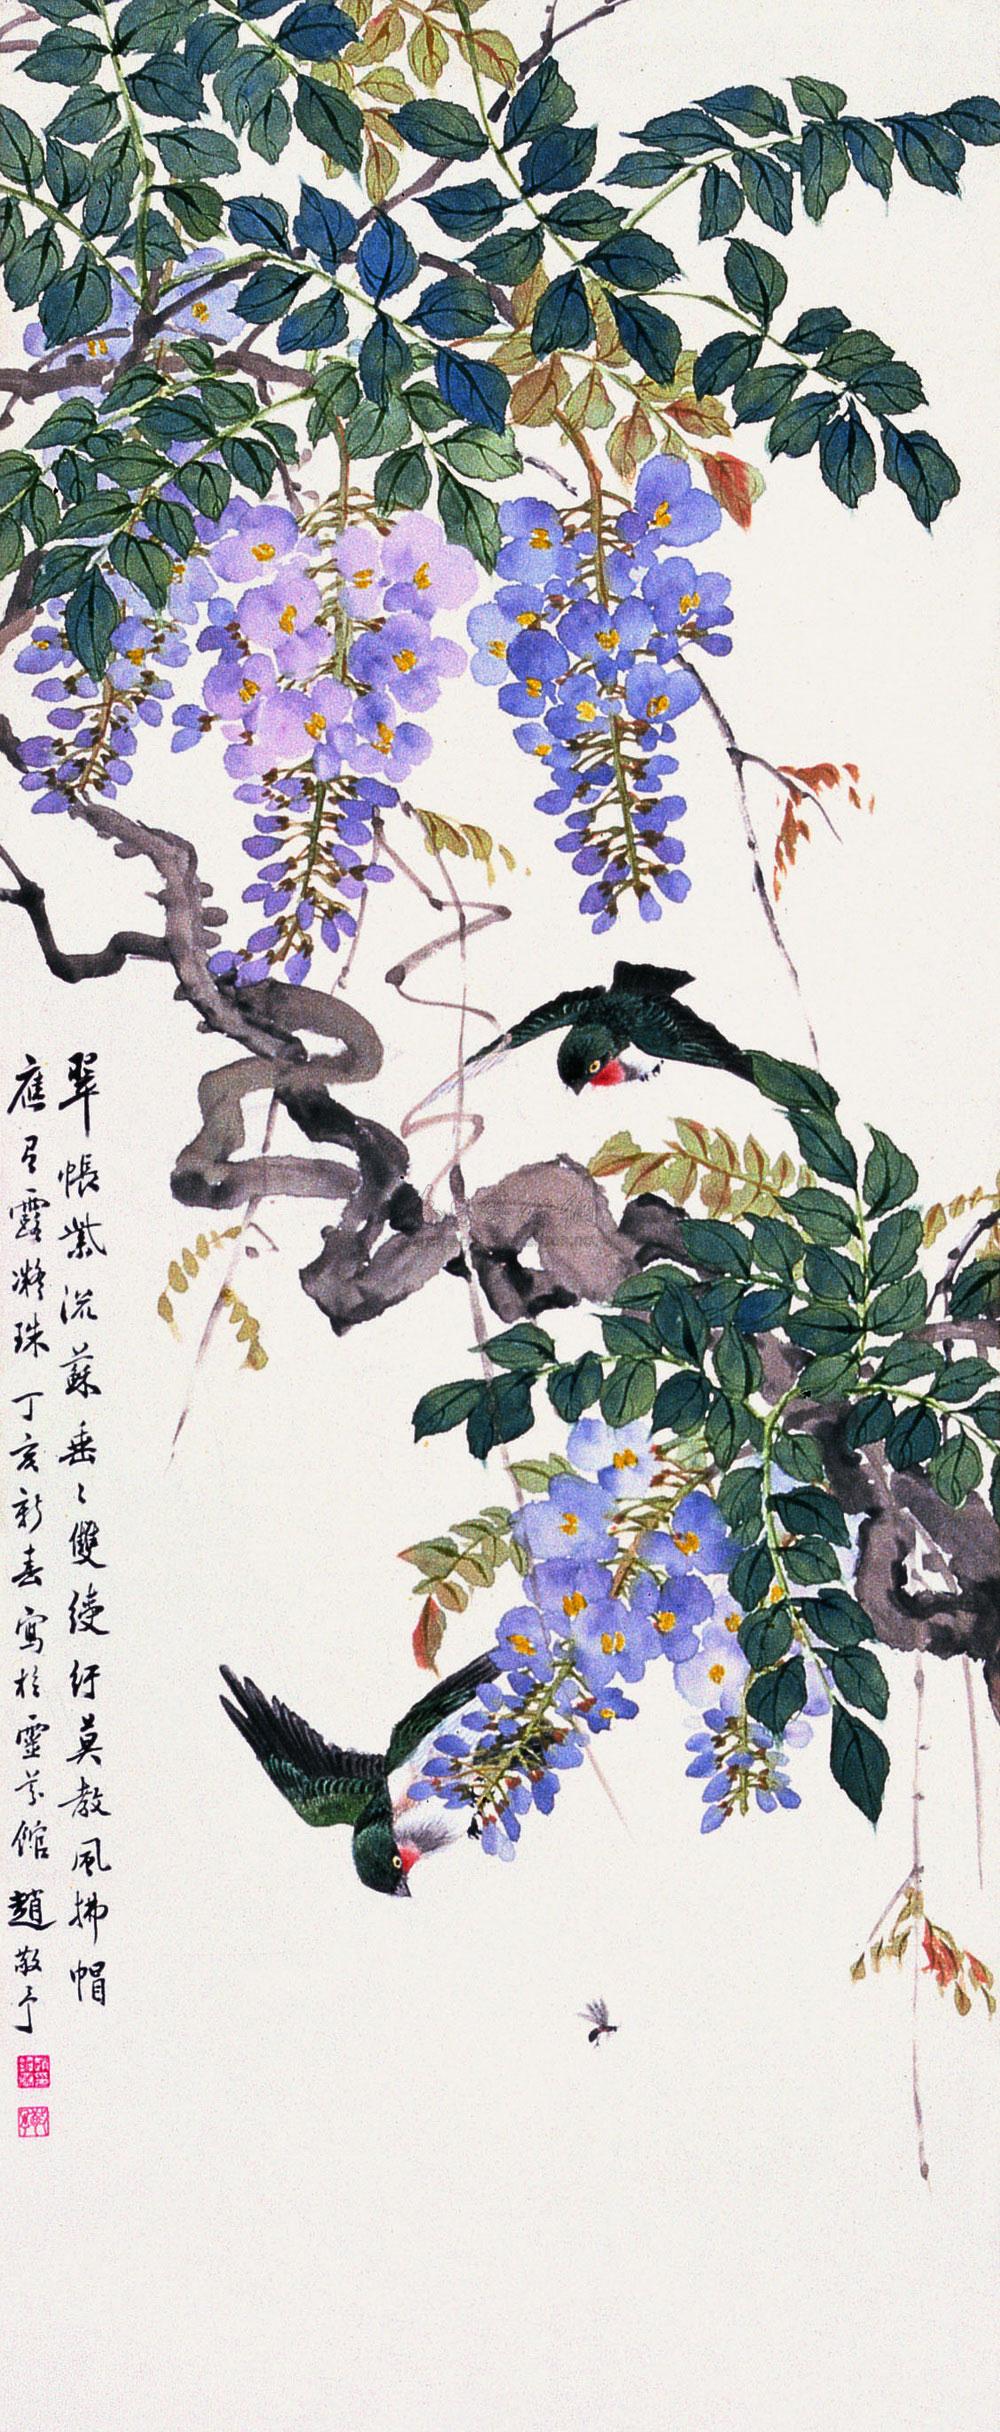 翠帳紫流蘇垂〻雙綬紆莫教風拂帽
應有露凝珠丁亥新春寫於靈芬館趙敬予